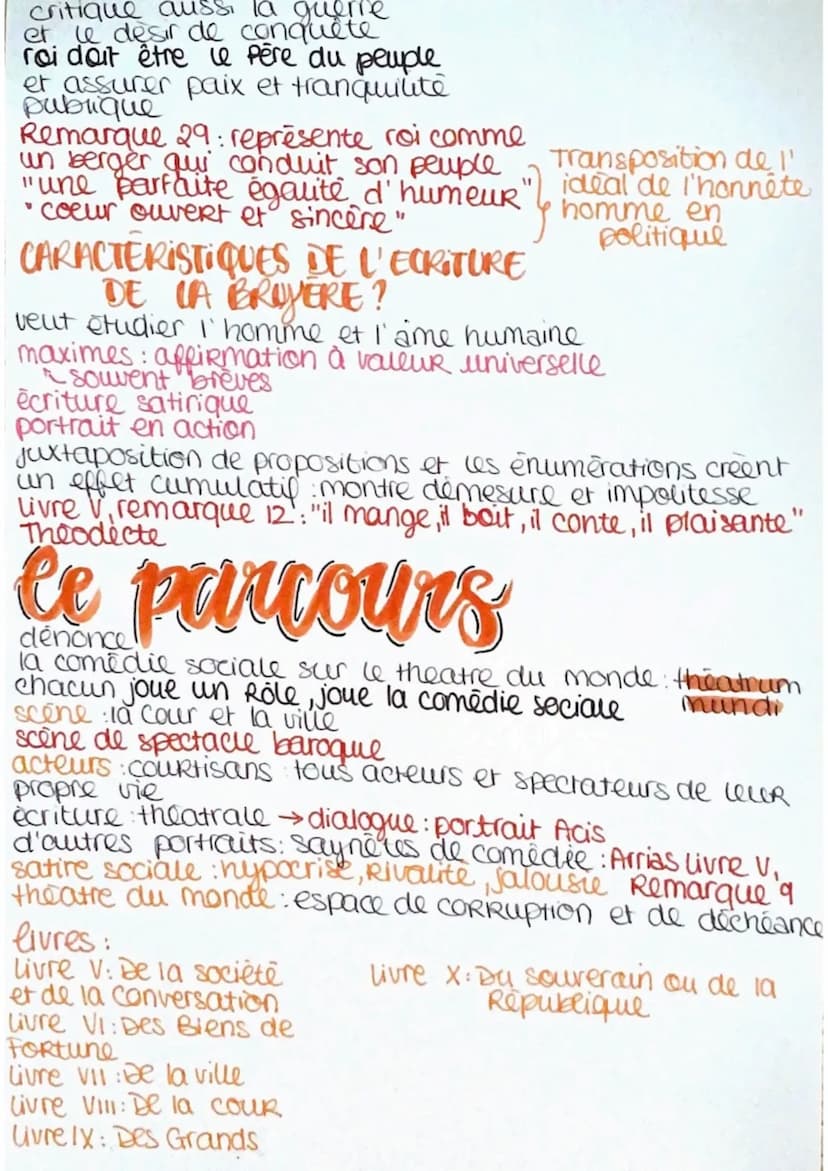 critique aussi la guerre
et le désir de conquête
roi doit être le Père du peuple
et assurer paix et tranquilité
publique
Remarque 29 : représente roi comme
un berger qui conduit son peuple
"une parfaite égalité d'humeur"
"coeur ouvert et sincère"
Transposition de l'
idéal de l'honnête
homme en
politique
CARACTÉRISTIQUES DE L'ECRITURE
DE LA BRUYÈRE ?
veut étudier l'homme et l'âme humaine
maximes : affirmation à valeur universelle
souvent brèves
écriture satirique
portrait en action
juxtaposition de propositions et les énumérations créent
un effet cumulatif : montre démesure et impolitesse
Livre V, remarque 12 : "il mange, il boit, il conte, il plaisante"
Théodecte
le parcours
dénonce
la comédie sociale sur le theatre du monde : théatrum
mundi
chacun joue un Rôle, joue la comédie sociale
scène : la cour et la ville
scène de spectacle baroque
acteurs : courtisans tous acteurs et spectateurs de leur
propre vie
écriture théatrale → dialogue : portrait Acis
d'autres portraits : saynètes de comédie : Arrias Livre V,
Remarque 9
satire sociale : hypocrisie, Rivalité, jalousie
théatre du monde : espace de corruption et de déchéance
livres :
Livre V : De la société
et de la conversation
Livre VI : Des Biens de
Fortune
Livre VII : De la ville
Livre VIII : De la cour
Livre IX : Des Grands
Livre X : Du souverain ou de la
République